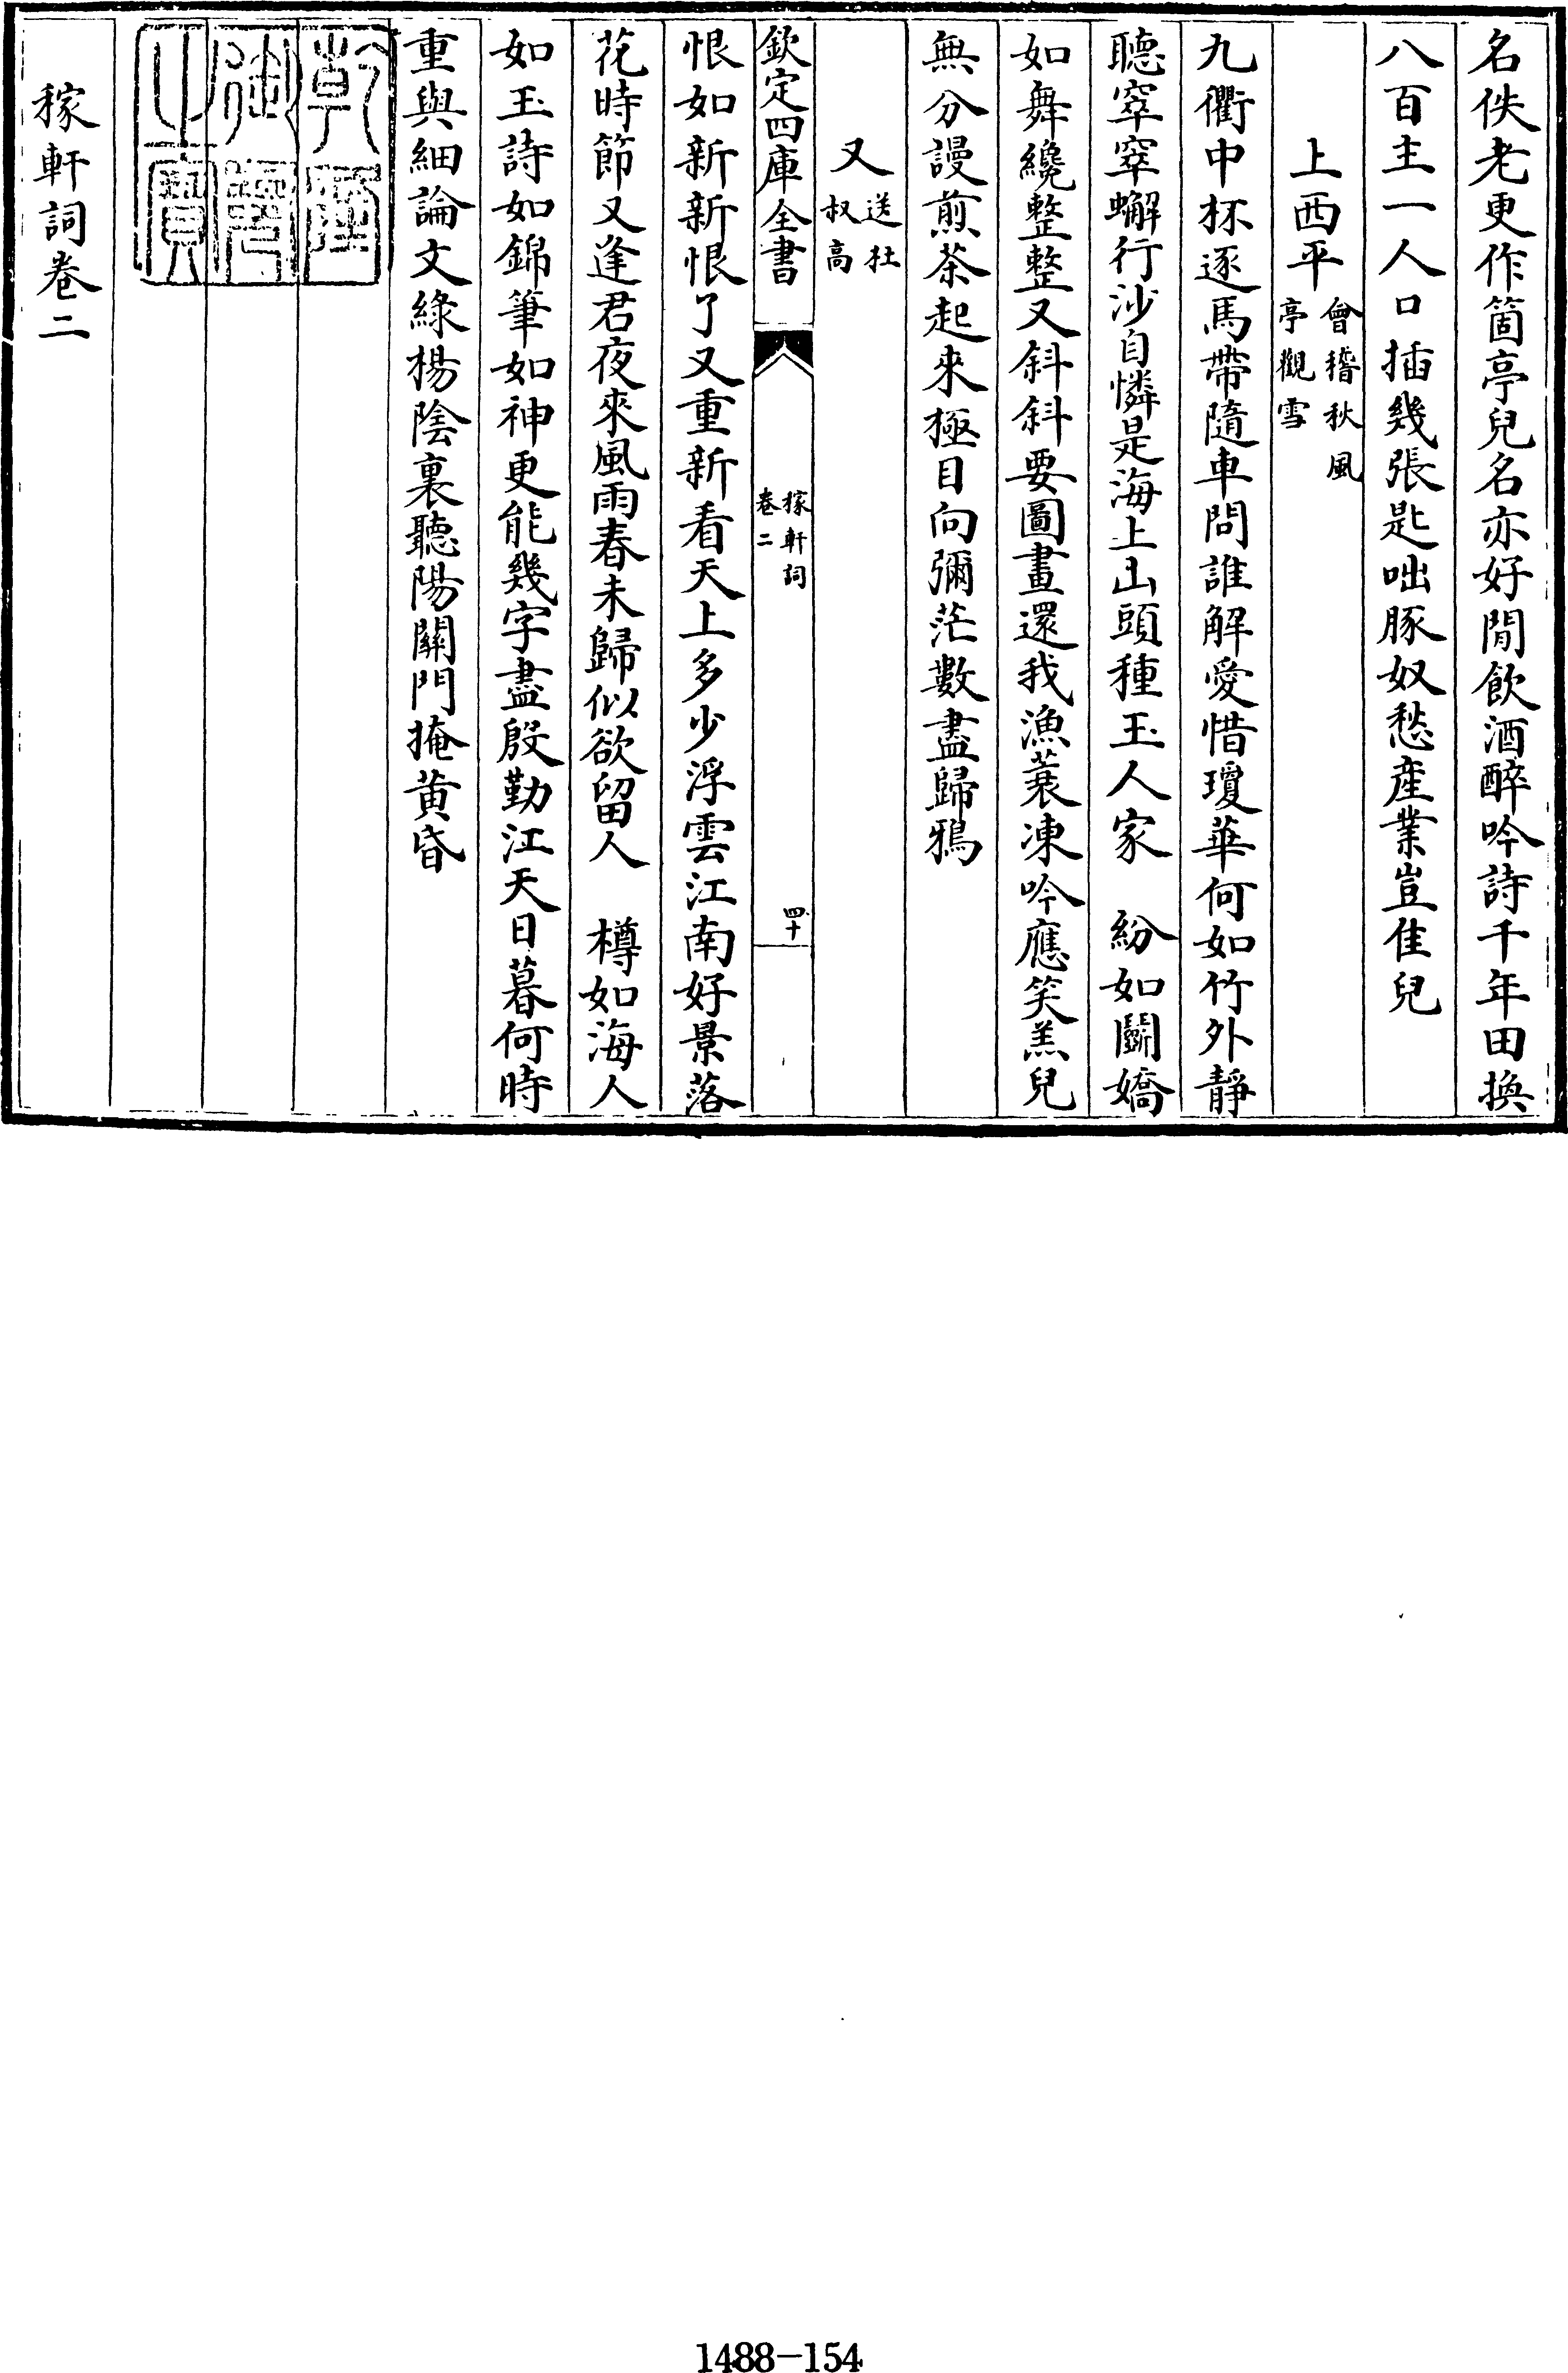 名佚老更作箇亭兒名亦好閒飲酒醉吟詩千年田換
八百主一人口插幾張匙咄豚奴愁産業豈佳兒
上西平會稽秋風亭觀雪
九衢中杯逐馬帶隨車問誰解愛惜瓊華何如竹外靜
聽窣窣蠏行沙自憐是海上山頭種玉人家　紛如鬭嬌
如舞纔整整又斜斜要圖畫還我漁蓑凍吟應笑羔兒
無分謾煎茶起來極目向彌茫數盡歸鴉
又送杜叔高
欽定四庫全書
稼軒詞
卷二
四十
恨如新新恨了又重新看天上多少浮雲江南好景落
花時節又逢君夜來風雨春未歸似欲留人　樽如海人
如玉詩如錦筆如神更能幾字盡殷勤江天日暮何時
重與細論文綠楊陰裏聽陽關門掩黄昏
乾隆
御覽
之寶
稼軒詞卷二
1488-154